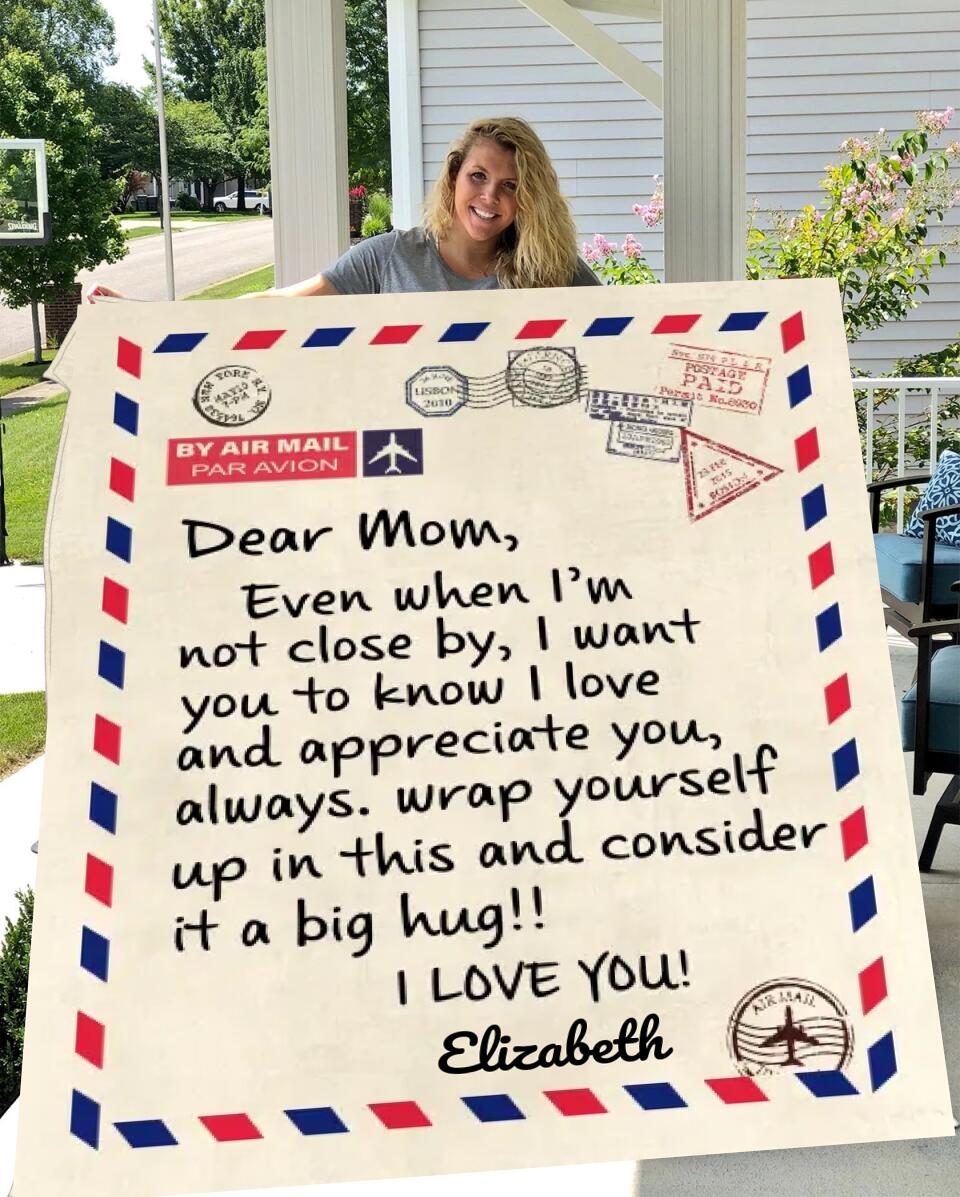 SPALDING
LISBON
2010
POSTAGE
PAID
Permit No.8930
BY AIR MAIL
PAR AVION
2015
BOSTON
Dear Mom,
Even when I'm
not close by, I want
you to know I love
and appreciate you,
always. wrap yourself
up in this and consider
it a big hug!!
I LOVE YOU!
Elizabeth
AIR MAIL